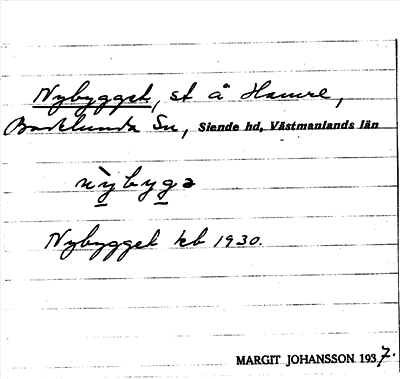 Nybygget, st å Hamre,
Badelunda Sn, Siende hd, Västmanlands län
nỳbygə
Nybygget kb 1930.
MARGIT JOHANSSON 1937.